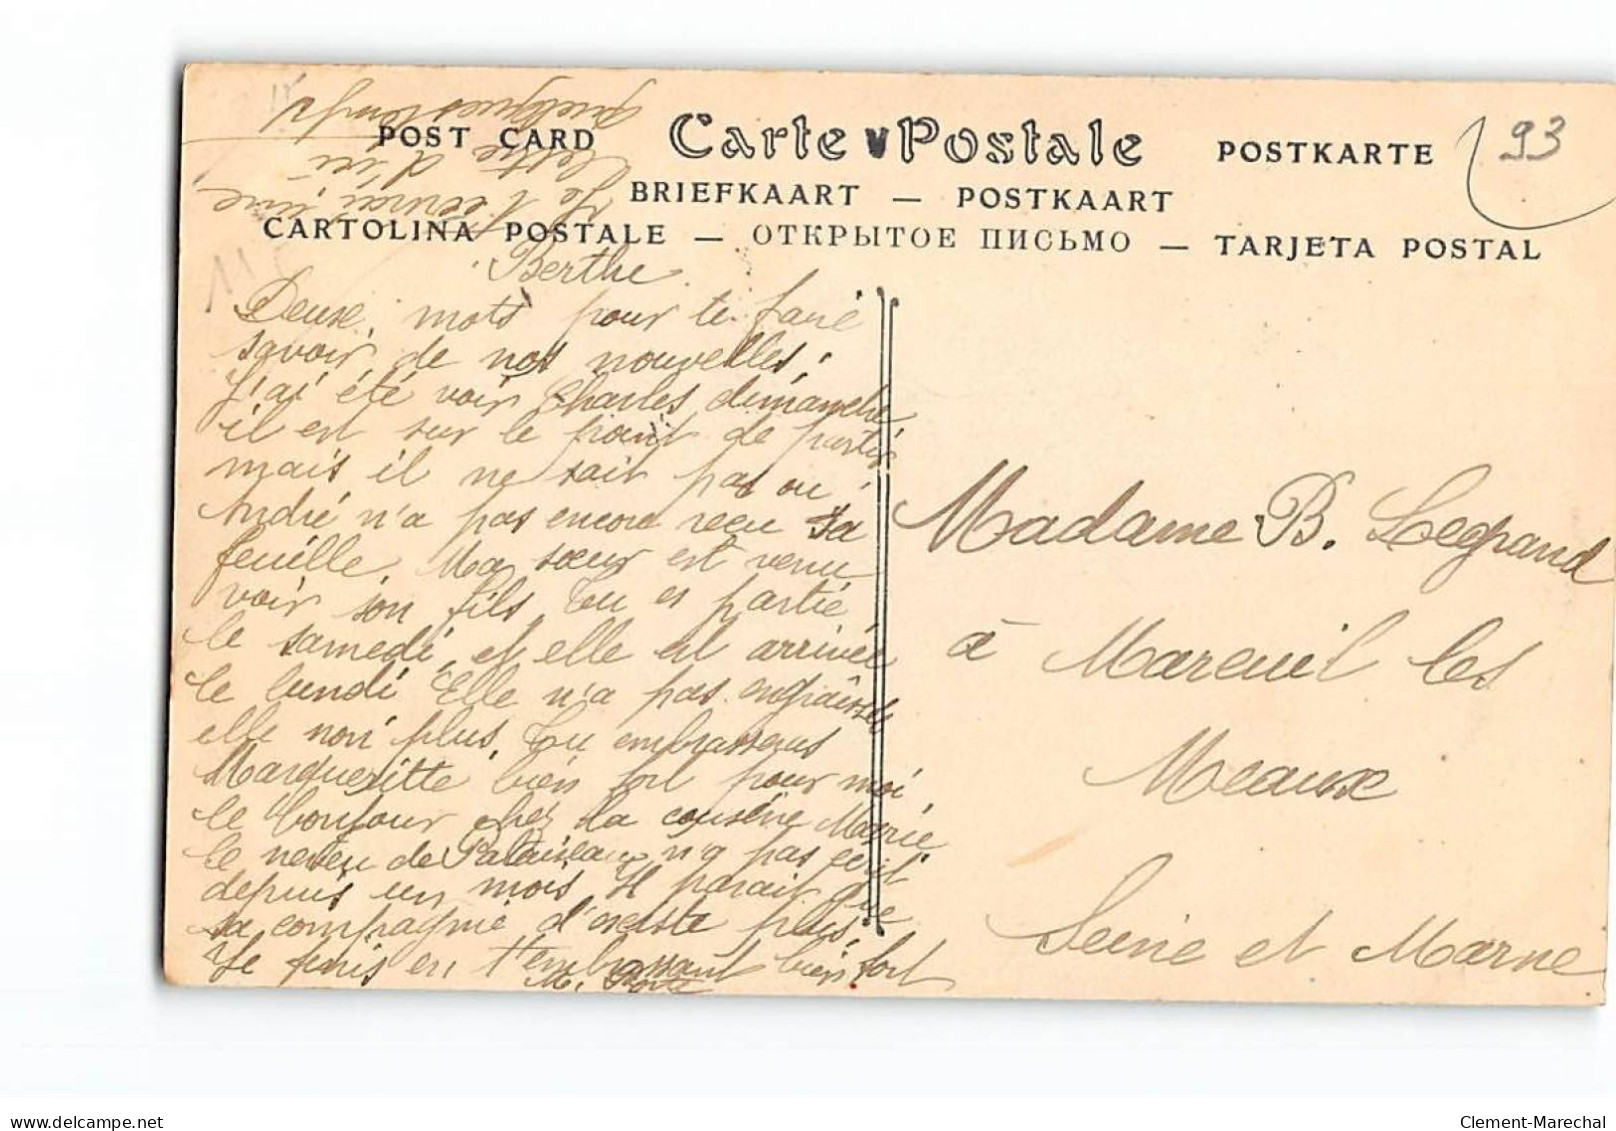 POST CARD Carte Postale POSTKARTE
93
BRIEFKAART — POSTKAART
CARTOLINA POSTALE — ОТКРЫТОЕ ПИСЬМО — TARJETA POSTAL
Berthe
Deuxe mots pour te faire
savoir de nos nouvelles;
J'ai été voir Charles dimanche
il est sur le point de partir
mais il ne sait pas ou;
André n'a pas encore reçu sa
feuille. Ma sœur est venu
voir son fils. Tu es partie
le samedi, et elle est arrivée
le lundi Elle n'a pas engraissée
elle non plus. Tu embrasseras
Margueritte bien fort pour moi
le bonjour chez la cousine Marie
le neveu de Palaiseau n'a pas ecrit
depuis un mois Il parait que
sa compagnie d'existe plus.
Je finis en t'embrassant bien fort
M.
Je t'ecrirai une
lettre d'ici
quelques temps
Madame B. Legrand
à Mareuil les
Meaux
Seine et Marne
delcampe.net
Clement-Marechal